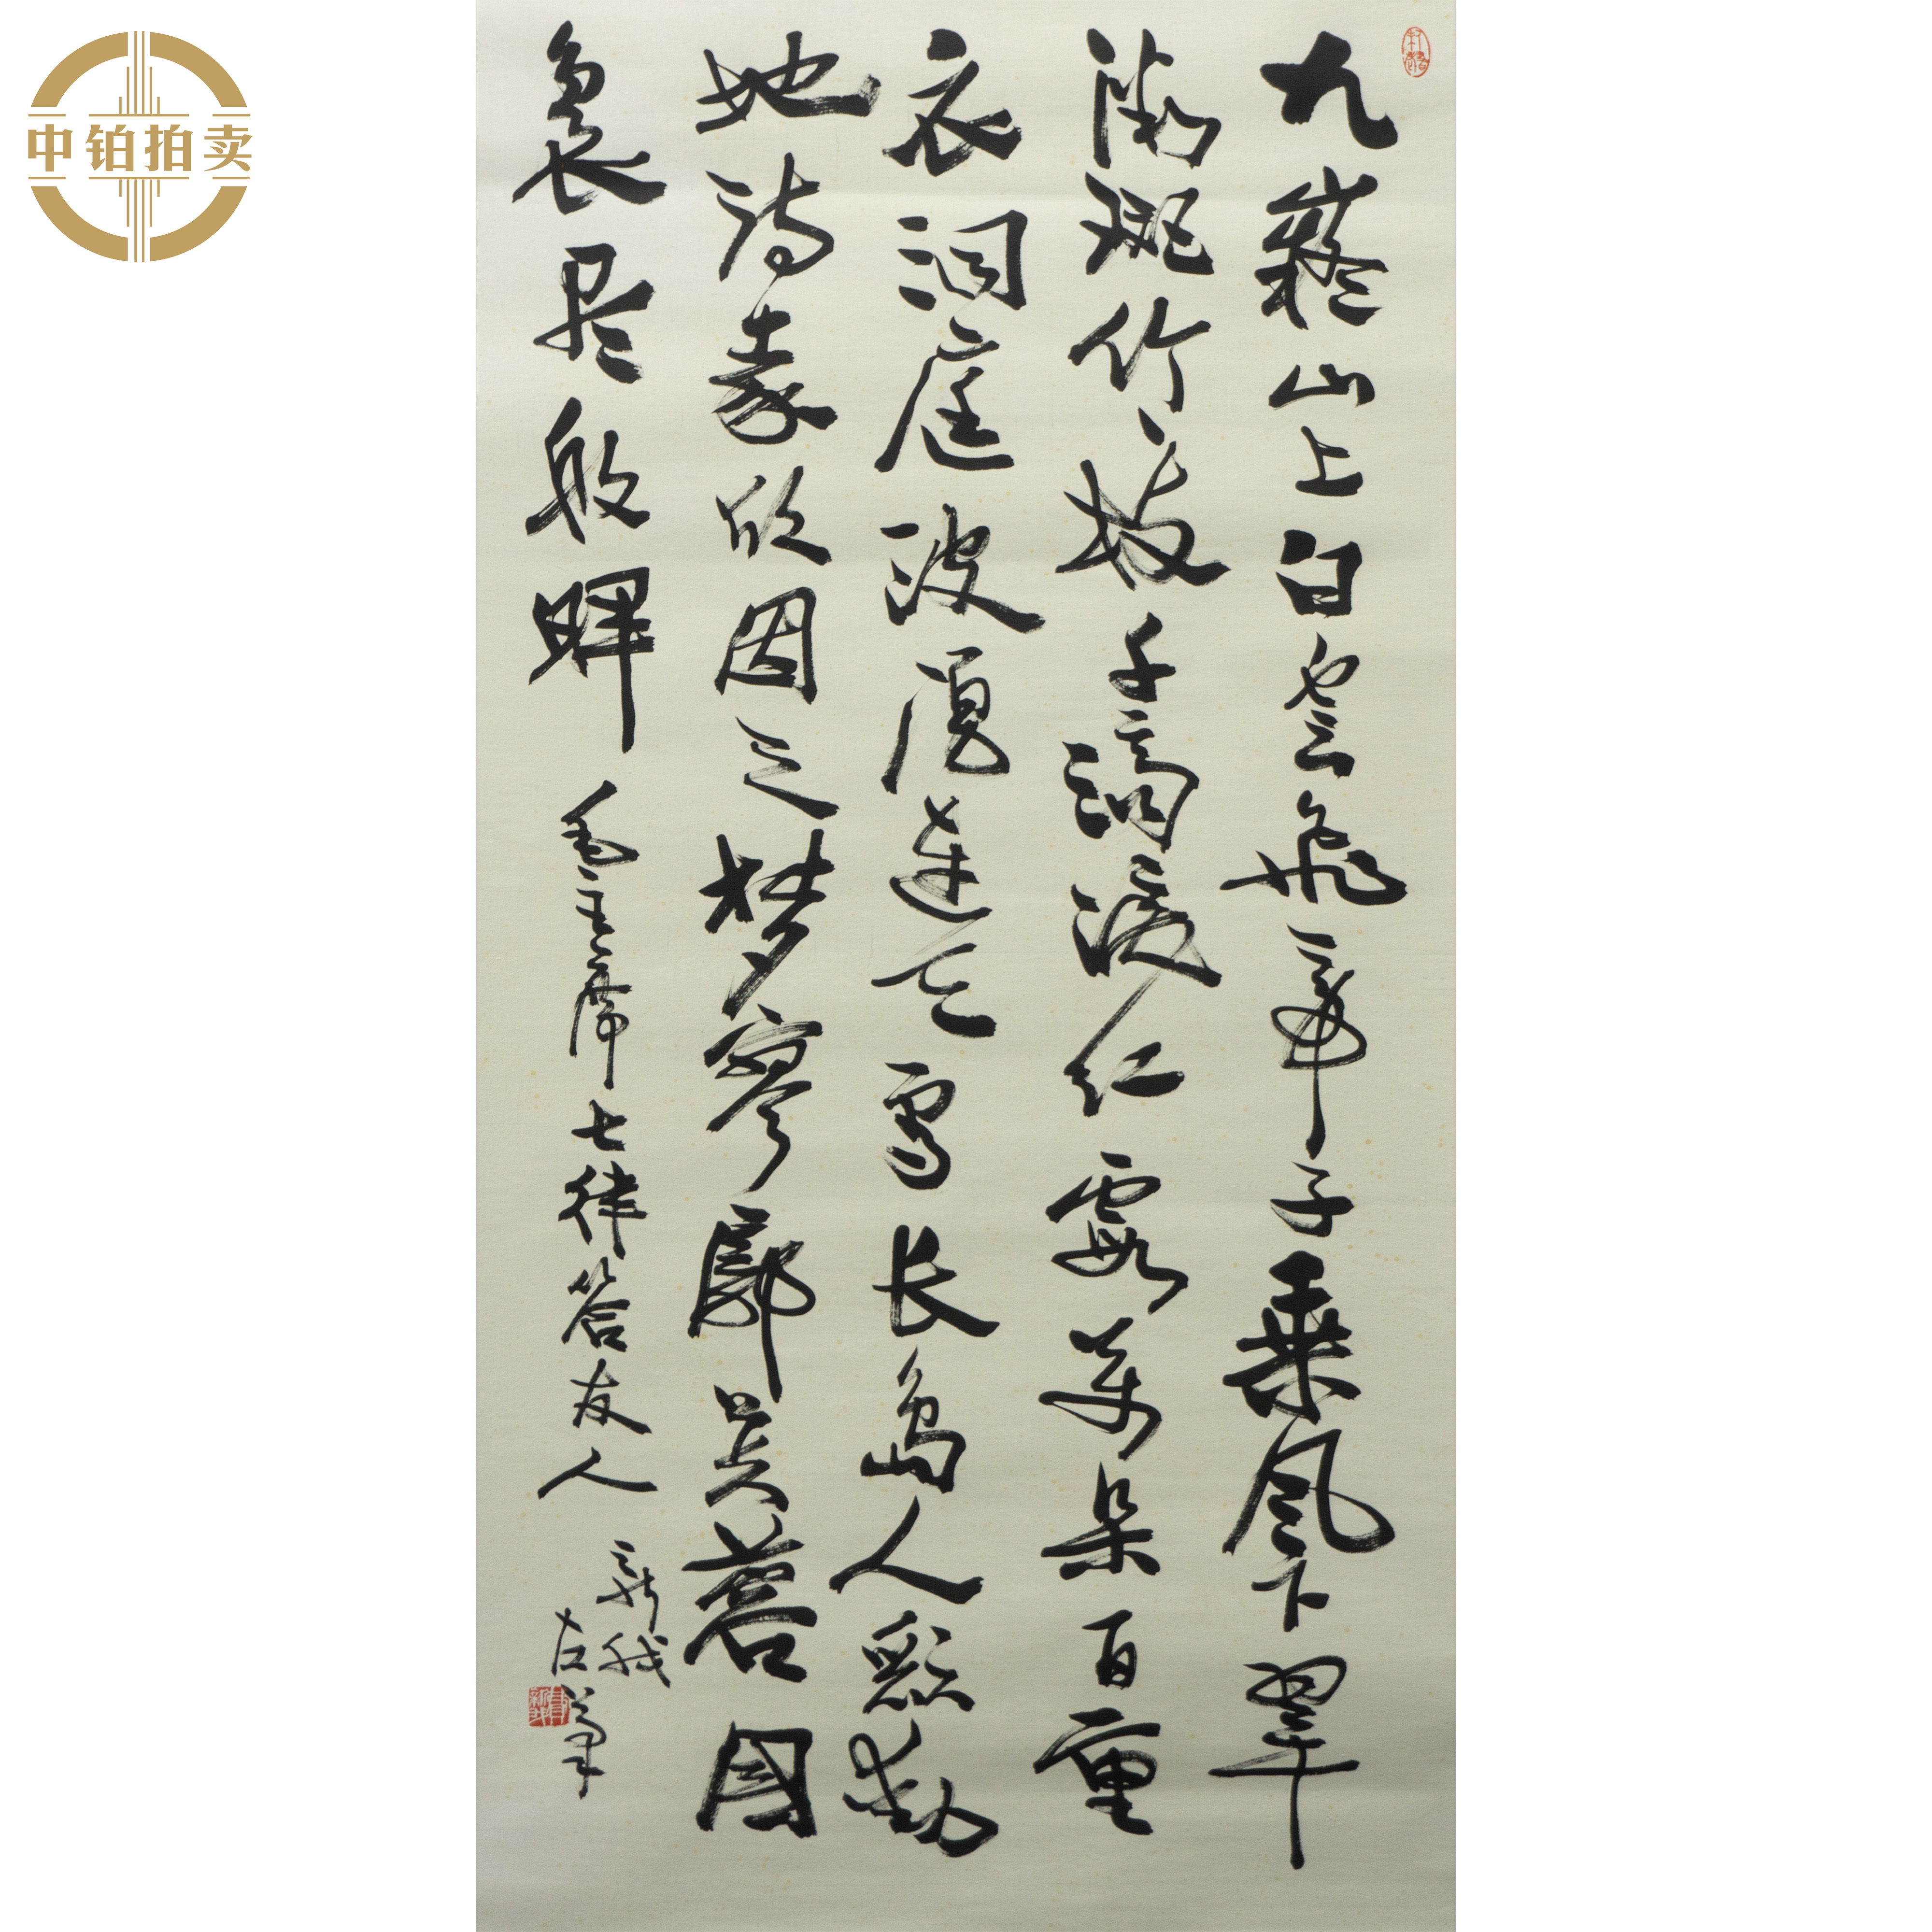 中铂拍卖
九嶷山上白雲飛帝子乘风下翠
微斑竹一枝千滴泪红霞萬朵百重
衣洞庭波涌連天雪长岛人歌動
地诗我欲因之梦寥廓芙蓉國
裏尽朝晖 毛主席七律答友人
新我
左筆